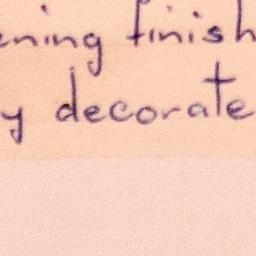 ening finish
y decorate